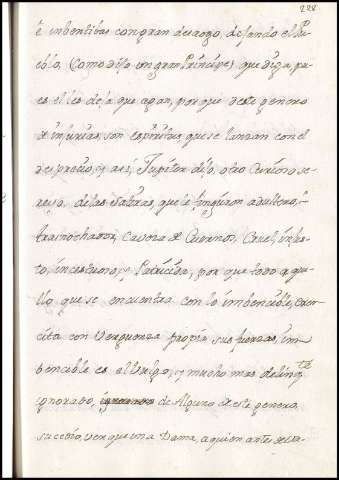 228
é imbentibas con gran desaogo, desando el Pu
eblo, Como dijo un gran Principe, que diga, pu
es el les deja que agan, por que deste genero
de injurias, son espiritus, que se lanzan con el
desprecio, y asi, Jupiter dijo, otro Cenino se
reya de las Satiras, que le finguron adultero,
trasnochador, Cavera de Cuernos, Cruel, ingra
to, incestuoso, y Patricida, por que todo aque
llo que se encuentra con lo imbencible, Exer
cita con Verguenza propia sus fuerzas, im
bencible es el Vulgo, y mucho mas delinqte
ignorado, de Alguno de este genero,
sucedio, ver que una Dama, a quien antes